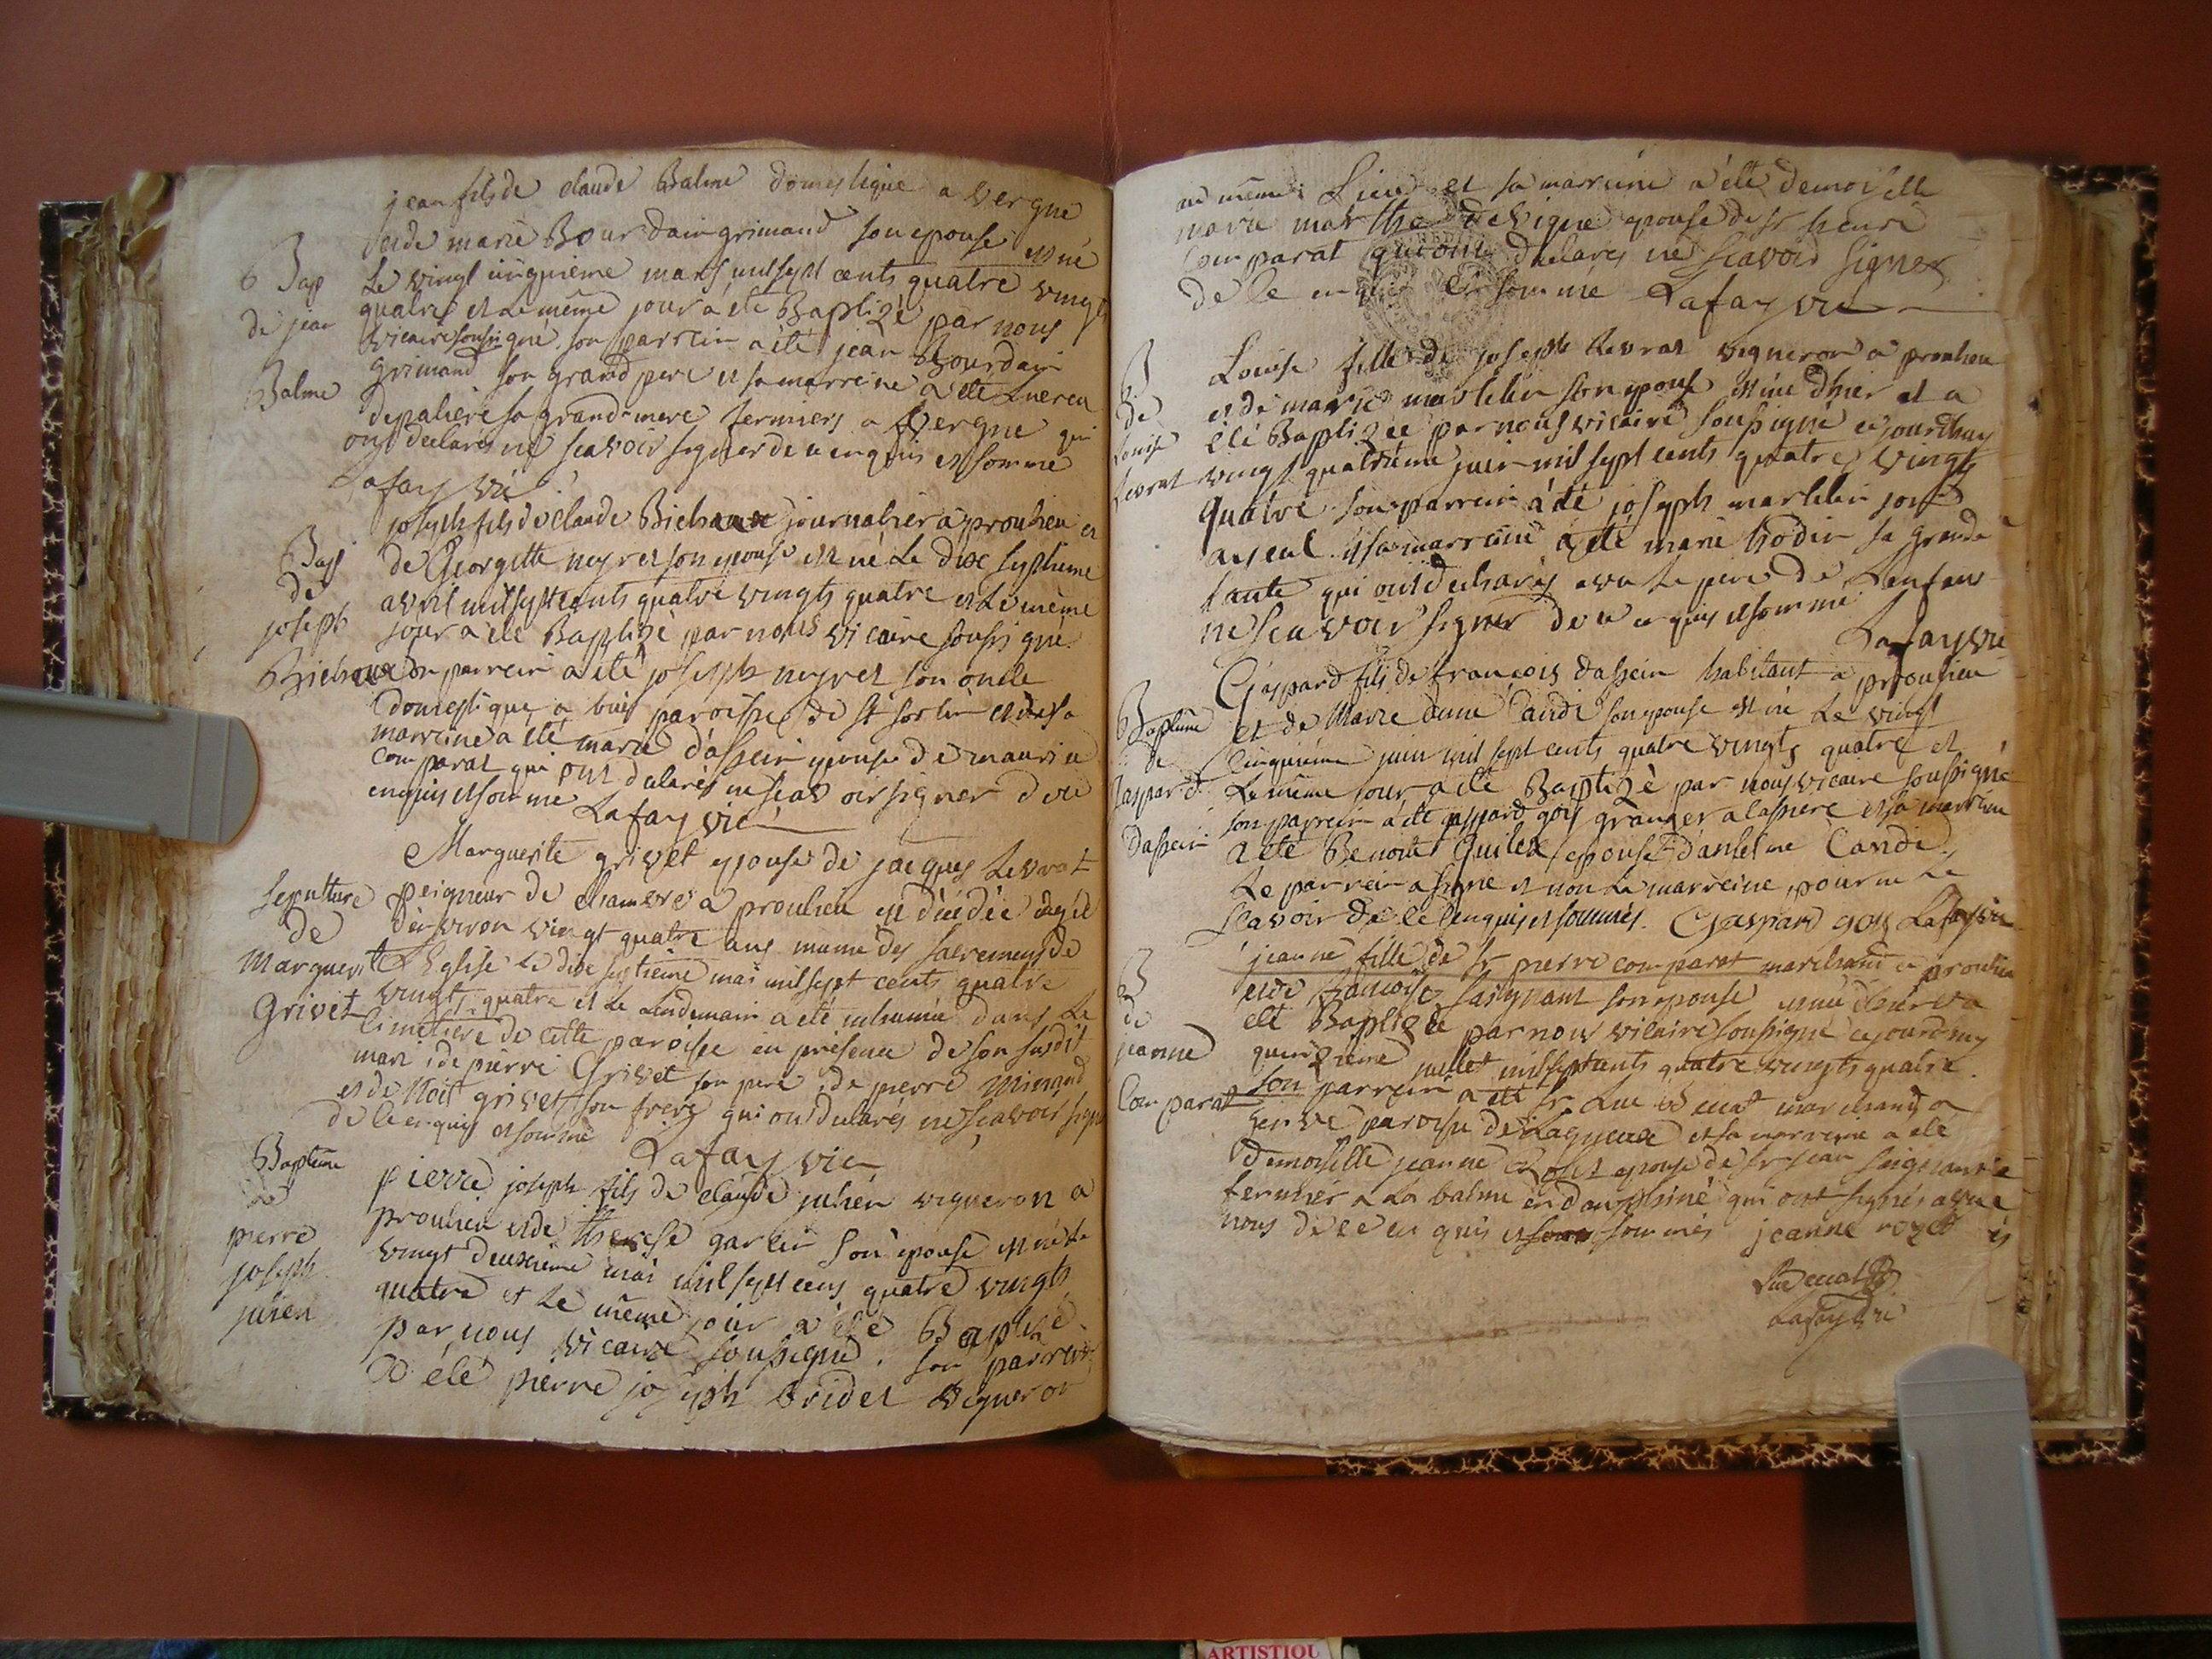 jean fils de claude Balme domestique a vergne
et de marie Bourdain grimand son epouse est né
6 Bap
le vingt cinquieme mars mil sept cents quatre vingts
quatre et le même jour a été Baptizé par nous
de jean
vicaire soussigné, son parrein a été jean Bourdain
grimand son grand pere et sa marreine a été
Balme
sa grand-mere fermiers a vergne qui
ont declarés ne scavoir signer de ce enquis et sommé
Lafay vic
joseph fils de claude Bichaux journalier a proulieu et
Bap
de Georgette neyret son epouse est né le dix septieme
de
avril mil sept cents quatre vingts quatre et le même
joseph
jour a été Baptizé par nous vicaire soussigné
Bichaux
son parrein a été joseph neyret son oncle
domestique a buis paroisse de st sorlin et sa
marreine a été marie d'assein epouse de
comparat qui ont declarés ne scavoir signer de ce
enquis et sommé Lafay vic
Marguerite grivet epouse de jacques Levrat
sepulture
peigneur de chamvre a proulieu est décédée agée
de
d'environ vingt quatre ans munie des sacremens de
Marguerite
L'Eglise le dix septieme mai mil sept cents quatre
Grivet
vingts quatre et le lendemain a été inhumée dans le
cimetiere de cette paroisse en présence de son susdit
mari, de pierre Grivet son pere, de pierre Minand
et de Noit grivet son frere qui ont declarés ne scavoir signer
de ce enquis et sommé Lafay vic
Bapteme
de
pierre
joseph
julien
pierre joseph fils de claude julien vigneron a
proulieu et de therese garlin son epouse est né le
vingt deuxieme mai mil sept cens quatre vingts
quatre et le même jour a été Baptizé
par nous vicaire soussigné. son parrein
a été pierre joseph bridet vigneron
au même Lieu et sa marreine a été demoiselle
marie marthe devigne epouse de sr henri
comparat qui ont declarés ne scavoir signer
de ce enquis et sommé Lafay vic
B
Louise fille de joseph Levrat vigneron a proulieu
de
et de marie martelin son epouse est née d'hier et a
Louise
été Baptizée par nous vicaire soussigné ce jourdhuy
Levrat
vingt quatrieme juin mil sept cents quatre vingts
quatre son parrein a été joseph martelin son
ayeul et sa marreine a été marie hodin sa grande
tante qui ont declarés avec le pere de Lenfant
ne scavoir signer de ce enquis et sommé
Lafay vic
Gaspard fils de françois dassein habitant a proulieu
Bapteme
et de Marie anne candi son epouse est né le vingt
de
cinquieme juin mil sept cents quatre vingts quatre et
Gaspard
le même jour a été Baptizé par nous vicaire soussigné
son parrein a été gaspard goy granger a et sa marreine
Dassein
a été Benoite Guilet epouse d'antelme Candi
Le parrein a signé et non la marreine pour ne le
scavoir de ce enquis et sommés. Gaspard goy Lafay vic
B
jeanne fille de sr pierre comparat marchand a proulieu
et de françoise saignant son epouse est née d'hier et a
de
été Baptizée par nous vicaire soussigné ce jourdhuy
jeanne
quinzieme juillet mil sept cents quatre vingts quatre.
Comparat
son parrein a été sr Luc marchand a
paroisse de Lagnieux et sa marreine a été
Demoiselle jeanne Rozet epouse de sr jean saignant
fermier a La balme en dauphiné qui ont signés avec
nous de ce enquis et sommés jeanne rozet
Lafay vic
ARTISTIQU